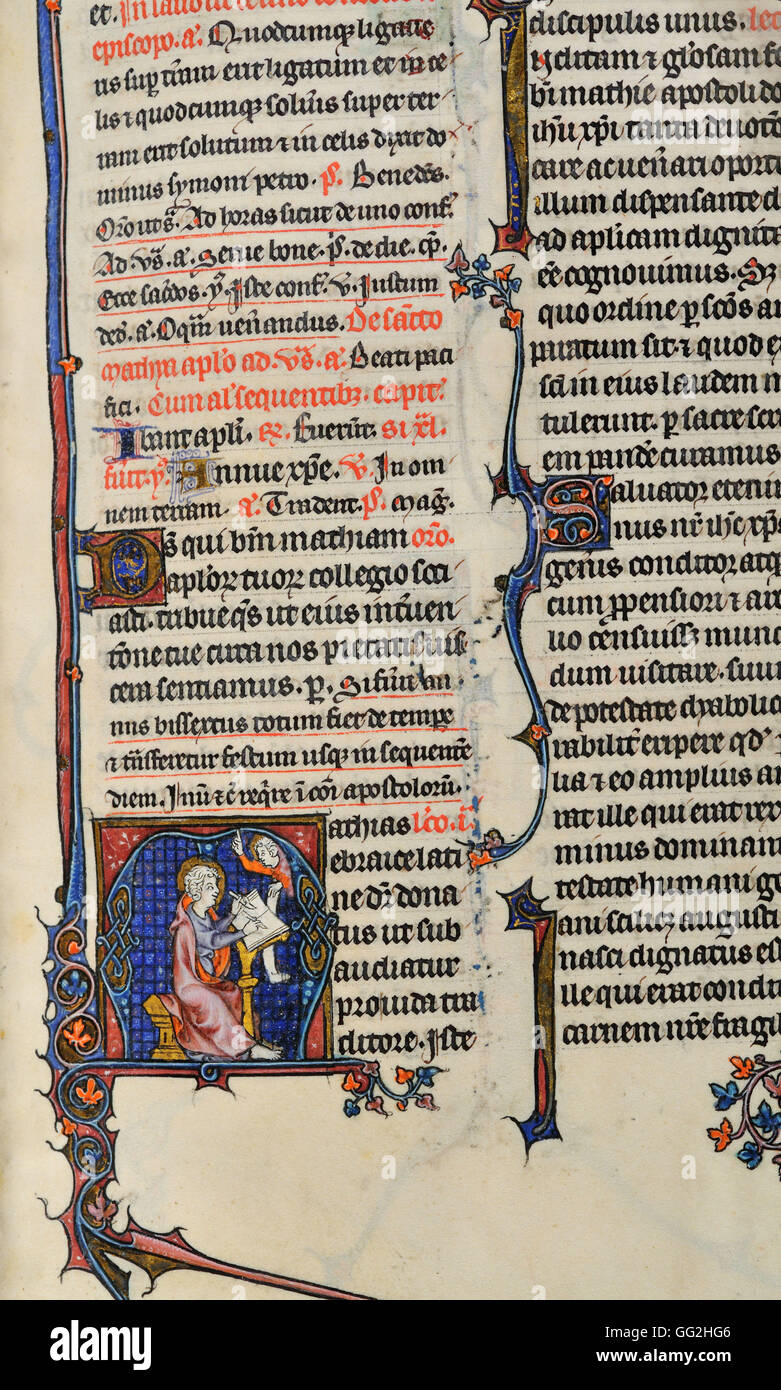 et. In laudib
episcopo. a. Quodcumq ligaue
ris sup terram erit ligatum et in ce
lis et quodcumq solueris super ter
ram erit solutum et in celis dixit do
minus symoni petro. ps. Benedcs.
Oro ut s. Ad horas sicut de uno conf.
Ad vs. a. Serue bone. ps. de die. cp.
Ecce sacdos. y. Iste conf. v. Iustum
deds. a. O qm uenandus. De sancto
mathia aplo ad. vs. a. Beati paci
fici. Cum al sequentib. capit.
Ibant apli. R. Fuerunt. si xl.
fuit. y. Annue xpe. v. In om
nem terram. a. Tradent. ps. mag.
Ds qui bm mathiam oro.
aplor tuor collegio soci
asti. tribue qs ut eius intuen
tione tue circa nos pietatis uis
cera sentiamus. p. Si fuit an
nus bissextus totum fiet de tempe
et tnsferetur festum usq in sequente
diem. Inuit et c reqre i coi apostolorum.
Mathias lco. i.
ebraice lati
ne dr dona
tus ut sub
audiatur
pro iuda tra
ditore. Iste
discipulis unus. lec
ditam et glosam
bi mathie apostoli do
ihu xpi tanta deuoton
care ac uenari oport
illum dispensante d
ad aplicam dignita
ee cognouimus.
quo ordine p scos
paratum sit. et quod
sca in eius laudem
tulerunt. p sacre scri
em pande curamus
Saluator etenim
nus nr ihc xpc
genis conditor atq
cum propensiori et
uo censuiss mun
dum uisitare. suu
de potestate dyabolic
rabiliter eripere qd
lia et eo amplius
rat ille qui erat rex
minus dominan
testate humani ge
ani scilic augusti
nasci dignatus es
lle qui erat condit
carnem nre fragil
alamy
Image ID: GG2HG6
www.alamy.com